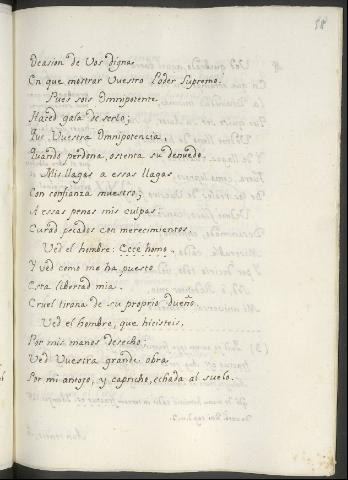 58
Ocasion de Vos digna
En que mostrar Vuestro Poder Supremo.
Pues sois Omnipotente,
Haced gala de serlo;
Que Vuestra Omnipotencia,
Quando perdona, ostenta su denuedo.
Mis llagas a essas llagas
Con confianza muestro;
A essas penas mis culpas:
Curad pecados con merecimientos.
Ved el hombre: Ecce homo.
Y ved como me ha puesto
Esta libertad mia,
Cruel tirana de su proprio dueño.
Ved el hombre, que hicisteis,
Por mis manos desecho:
Ved Vuestra grande obra
Por mi antojo, y capricho, echada al suelo.